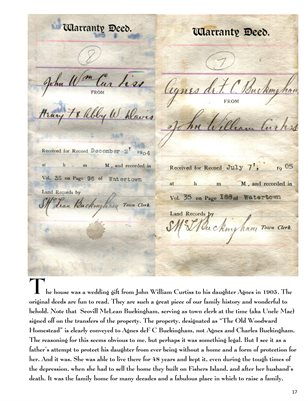 Warranty Deed.
2
John Wm Curtiss
FROM
Henry T & Abby W Dawes
Received for Record December 2, 1904
at h m M., and recorded in
Vol. 35 on Page 95 of Watertown
Land Records by
S McLean Buckingham Town Clerk.
Warranty Deed.
1
Agnes deF C Buckingham
FROM
John William Curtiss
Received for Record July 7, 1905
at h m M., and recorded in
Vol. 35 on Page 158 of Watertown
Land Records by
S McL Buckingham Town Clerk
The house was a wedding gift from John William Curtiss to his daughter Agnes in 1905. The
original deeds are fun to read. They are such a great piece of our family history and wonderful to
behold. Note that Scovill McLean Buckingham, serving as town clerk at the time (aka Uncle Mac)
signed off on the transfers of the property. The property, designated as "The Old Woodward
Homestead" is clearly conveyed to Agnes deF C Buckingham, not Agnes and Charles Buckingham.
The reasoning for this seems obvious to me, but perhaps it was something legal. But I see it as a
father's attempt to protect his daughter from ever being without a home and a form of protection for
her. And it was. She was able to live there for 48 years and kept it, even during the tough times of
the depression, when she had to sell the home they built on Fishers Island, and after her husband's
death. It was the family home for many decades and a fabulous place in which to raise a family.
17